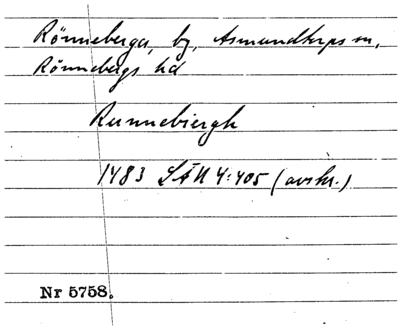 Rönneberga, by, Asmundtorps sn,
Rönnebergs hd
Runnebiergh
1483 LÄU 4:405 (avskr.)
Nr 5758.